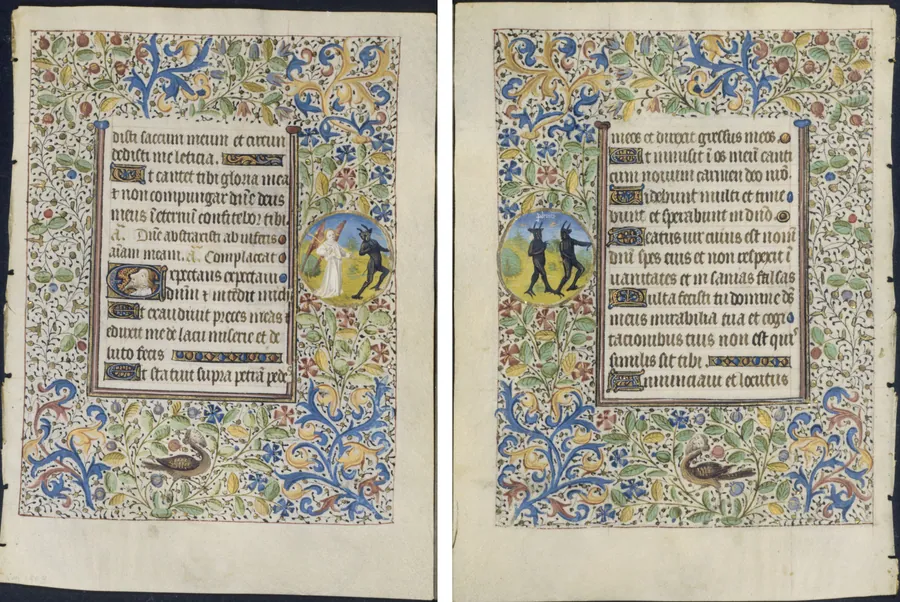 disti saccum meum et circum
dedisti me leticia.
Et cantet tibi gloria mea
et non compungar dñe deus
meus ieternum confitebor tibi
añ. Dñe abstraxisti ab inferis
aiam meam. añ. Complaceat
Expectans expectaui
dñum et intẽdit michi
Et exaudiuit preces meas
eduxit me de lacu miserie et de
luto fecis
Et statuit supra petrã pede
meos et direxit gressus meos
Et inmisit i os meũ canti
cum nouum carmen deo nrõ
Uidebunt multi et time
bunt et sperabunt in dño
Beatus uir cuius est nomẽ
dñi spes eius et non respexit i
uanitates et insanias falsas
Multa fecisti tu domine ds
meus mirabilia tua et cogi
tacionibus tuis non est qui
similis sit tibi
Annunciaui et locutus